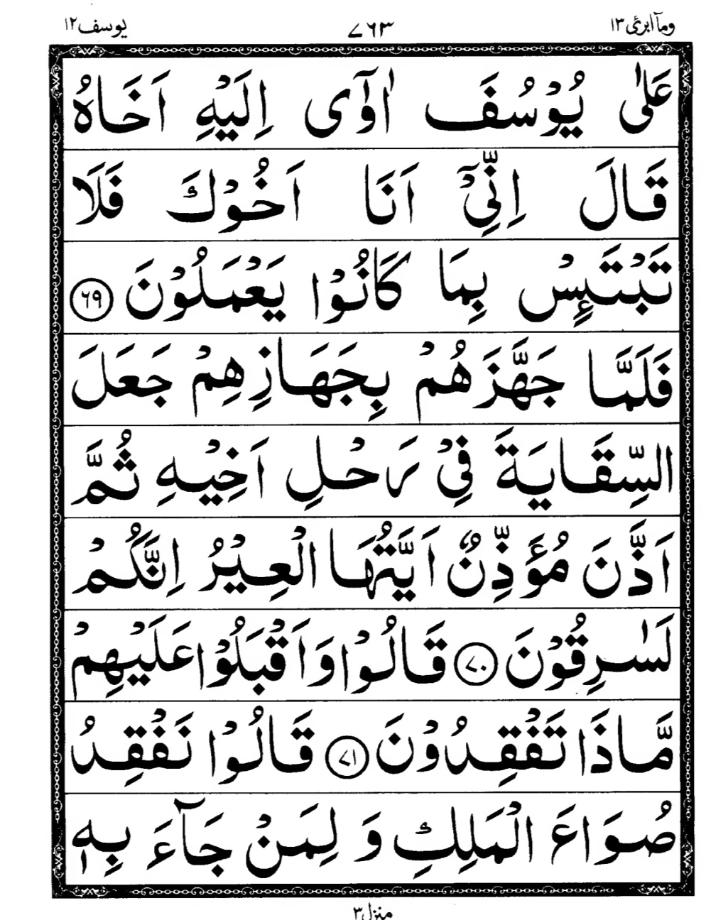 ومآ ابرئ ١٣ ٧٦٣ يوسف ١٢
عَلٰى يُوْسُفَ اٰوٰٓى اِلَيْهِ اَخَاهُ
قَالَ اِنِّىْٓ اَنَا اَخُوْكَ فَلَا
تَبْتَئِسْ بِمَا كَانُوْا يَعْمَلُوْنَ ۝٦٩
فَلَمَّا جَهَّزَهُمْ بِجَهَازِهِمْ جَعَلَ
السِّقَايَةَ فِىْ رَحْلِ اَخِيْهِ ثُمَّ
اَذَّنَ مُؤَذِّنٌ اَيَّتُهَا الْعِيْرُ اِنَّكُمْ
لَسٰرِقُوْنَ ۝٧٠ قَالُوْا وَاَقْبَلُوْا عَلَيْهِمْ
مَّاذَا تَفْقِدُوْنَ ۝٧١ قَالُوْا نَفْقِدُ
صُوَاعَ الْمَلِكِ وَ لِمَنْ جَآءَ بِهٖ
منزل ٣